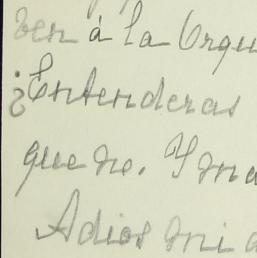 ven á la Orqu
¿Entenderas
que no. Y ma
Adios mi a